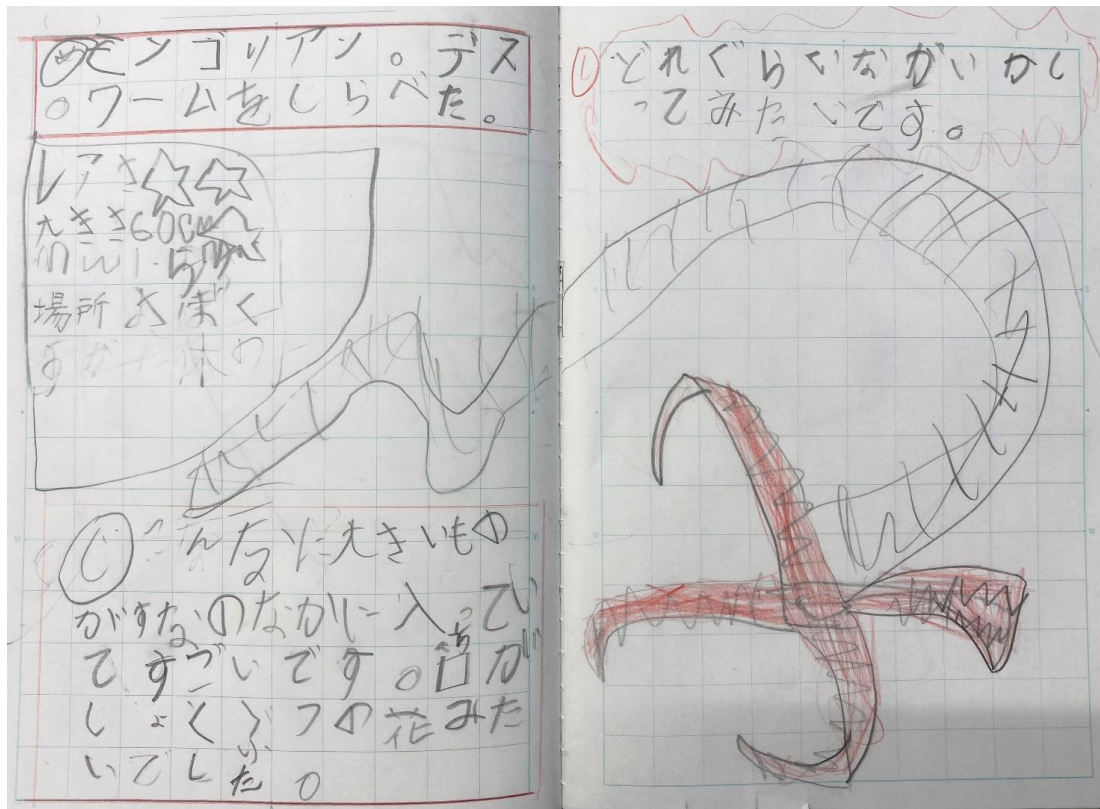 めモンゴリアン。デス
。ワームをしらべた。
レアさ☆☆
大きさ60cm
場所 さばく
すがた
じこんなに大きいもの
がすなのなかに入ってい
てすごいです。口がくち
しょくぶつの花みた
いでした。
①どれぐらいながいかし
ってみたいです。